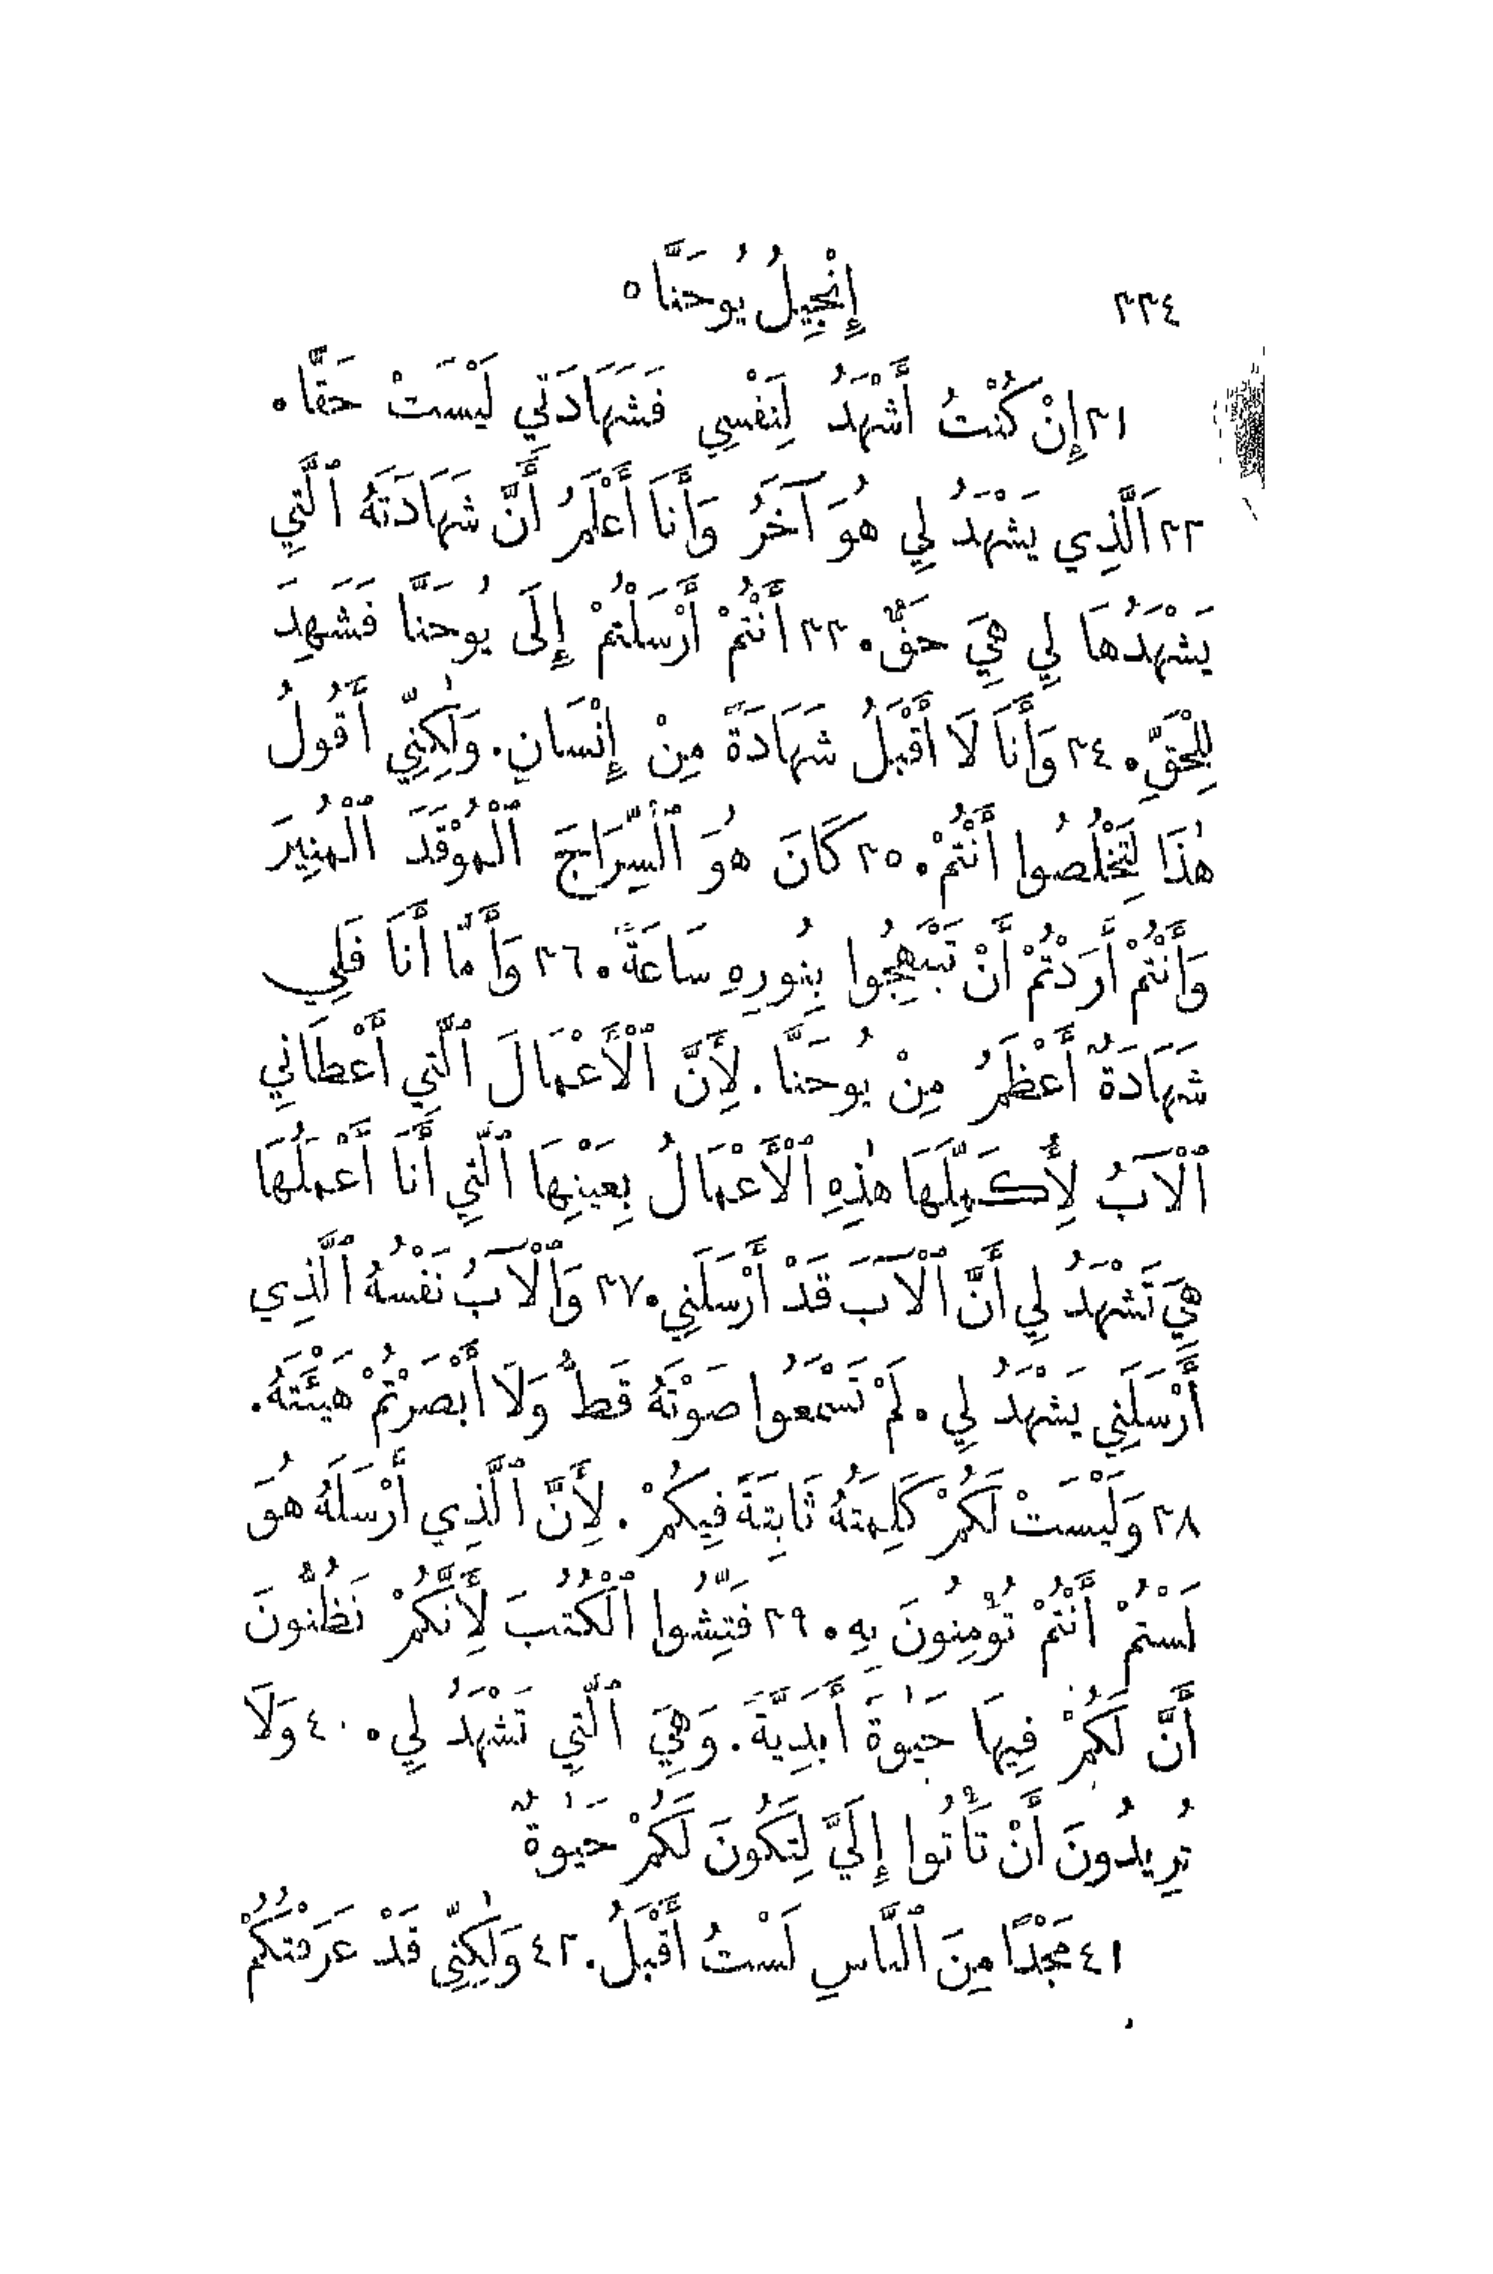 ٣٣٤ إِنْجِيلُ يُوحَنَّا ٥
٣١ إِنْ كُنْتُ أَشْهَدُ لِنَفْسِي فَشَهَادَتِي لَيْسَتْ حَقًّا.
٣٢ اَلَّذِي يَشْهَدُ لِي هُوَ آخَرُ وَأَنَا أَعْلَمُ أَنَّ شَهَادَتَهُ ٱلَّتِي
يَشْهَدُهَا لِي هِيَ حَقٌّ. ٣٣ أَنْتُمْ أَرْسَلْتُمْ إِلَى يُوحَنَّا فَشَهِدَ
لِلْحَقِّ. ٣٤ وَأَنَا لَا أَقْبَلُ شَهَادَةً مِنْ إِنْسَانٍ. وَلٰكِنِّي أَقُولُ
هٰذَا لِتَخْلُصُوا أَنْتُمْ. ٣٥ كَانَ هُوَ ٱلسِّرَاجَ ٱلْمُوْقَدَ ٱلْمُنِيرَ
وَأَنْتُمْ أَرَدْتُمْ أَنْ تَبْتَهِجُوا بِنُورِهِ سَاعَةً. ٣٦ وَأَمَّا أَنَا فَلِي
شَهَادَةٌ أَعْظَمُ مِنْ يُوحَنَّا. لِأَنَّ ٱلْأَعْمَالَ ٱلَّتِي أَعْطَانِي
ٱلْآبُ لِأُكَمِّلَهَا هٰذِهِ ٱلْأَعْمَالُ بِعَيْنِهَا ٱلَّتِي أَنَا أَعْمَلُهَا
هِيَ تَشْهَدُ لِي أَنَّ ٱلْآبَ قَدْ أَرْسَلَنِي. ٣٧ وَٱلْآبُ نَفْسُهُ ٱلَّذِي
أَرْسَلَنِي يَشْهَدُ لِي. لَمْ تَسْمَعُوا صَوْتَهُ قَطُّ وَلَا أَبْصَرْتُمْ هَيْئَتَهُ.
٣٨ وَلَيْسَتْ لَكُمْ كَلِمَتُهُ ثَابِتَةً فِيكُمْ. لِأَنَّ ٱلَّذِي أَرْسَلَهُ هُوَ
لَسْتُمْ أَنْتُمْ تُؤْمِنُونَ بِهِ. ٣٩ فَتِّشُوا ٱلْكُتُبَ لِأَنَّكُمْ تَظُنُّونَ
أَنَّ لَكُمْ فِيهَا حَيٰوةً أَبَدِيَّةً. وَهِيَ ٱلَّتِي تَشْهَدُ لِي. ٤٠ وَلَا
تُرِيدُونَ أَنْ تَأْتُوا إِلَيَّ لِتَكُونَ لَكُمْ حَيٰوةٌ
٤١ مَجْدًا مِنَ ٱلنَّاسِ لَسْتُ أَقْبَلُ. ٤٢ وَلٰكِنِّي قَدْ عَرَفْتُكُمْ